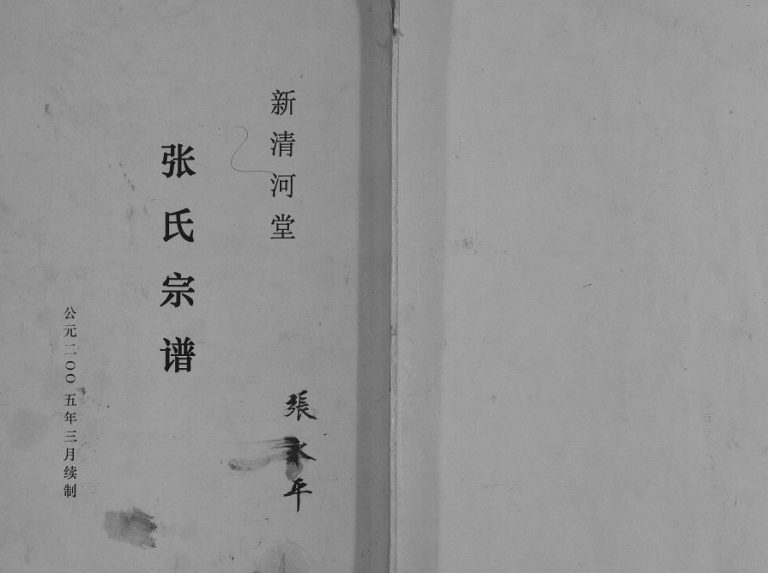 新清河堂
張永平
张氏宗谱
公元二〇〇五年三月续制